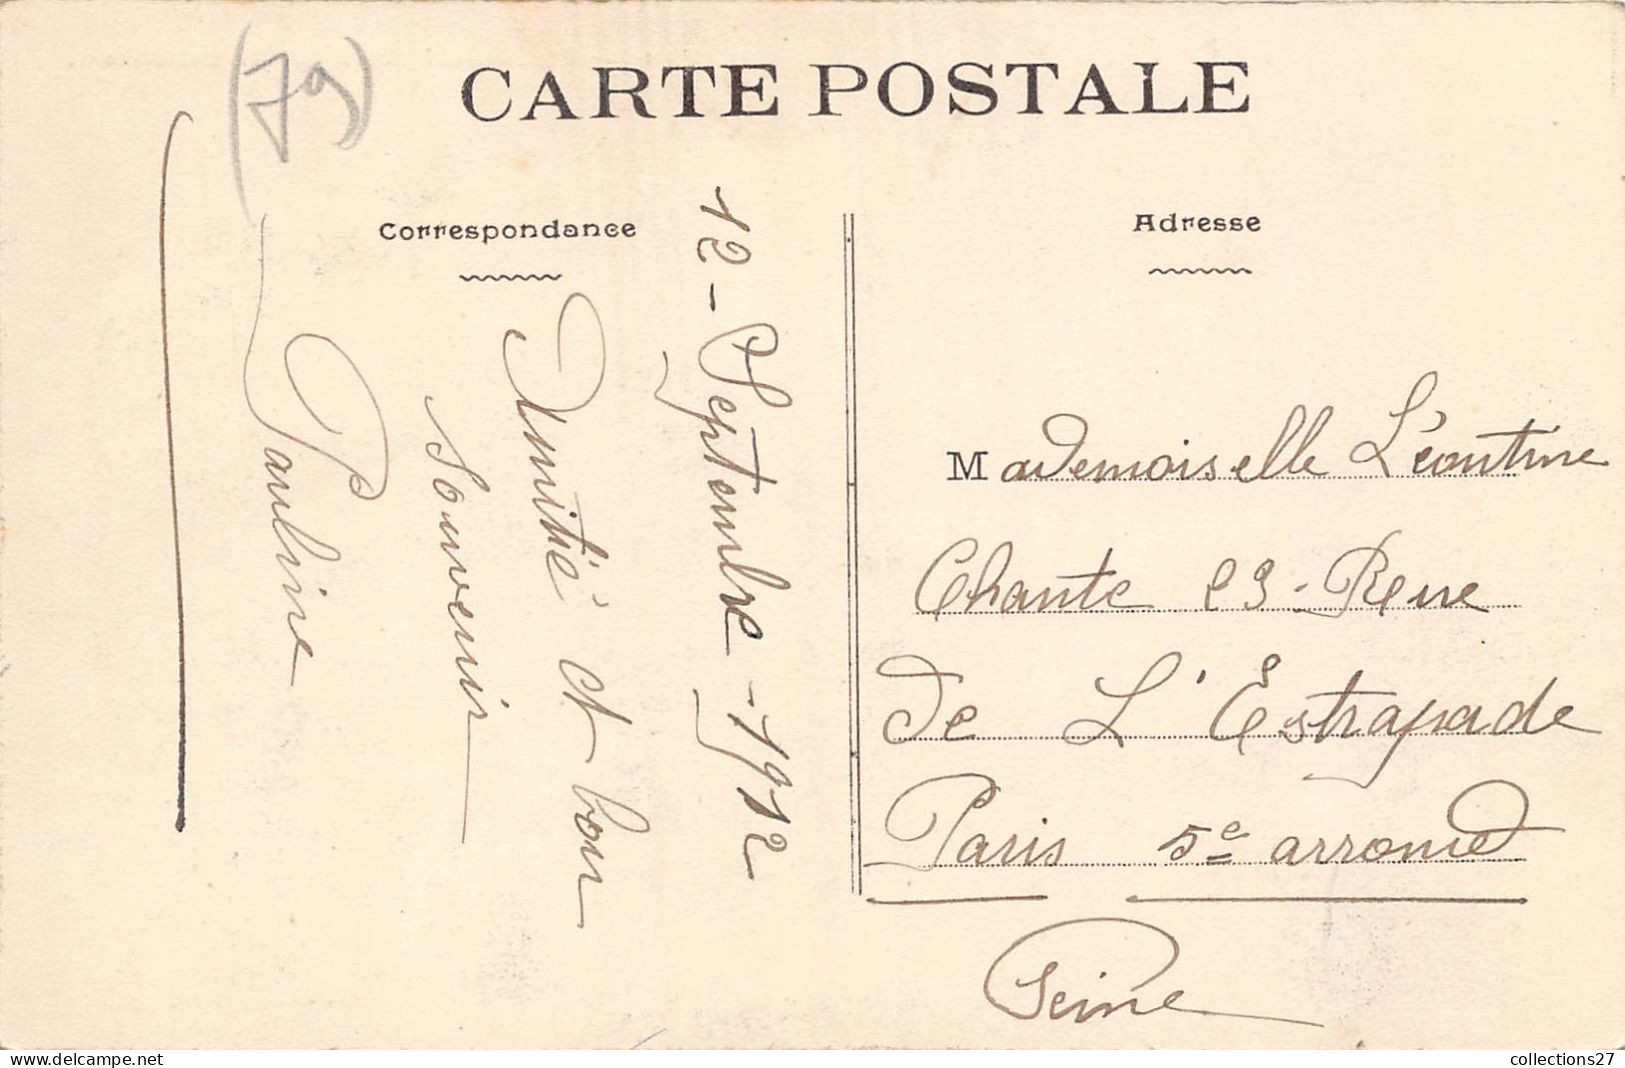 (79)
CARTE POSTALE
Correspondance
12 - Septembre - 1912
Amitié et bon
souvenir
Pauline
Adresse
Mademoiselle Léontine
Chante 23 - Rue
De L'Estrapade
Paris 5e arrond
Seine
collections27